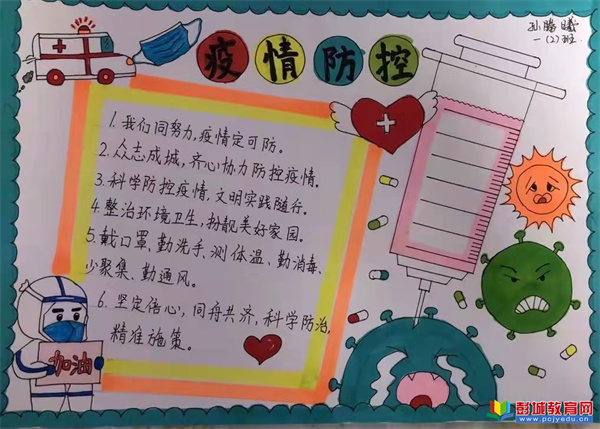 疫情防控
孙腾曦
一(2)班
1.我们同努力,疫情定可防。
2.众志成城,齐心协力防控疫情。
3.科学防控疫情,文明实践随行。
4.整治环境卫生,扮靓美好家园。
5.戴口罩、勤洗手、测体温、勤消毒、
少聚集、勤通风。
6.坚定信心,同舟共济,科学防治,
精准施策。
加油
彭城教育网
www.pcjyedu.cn